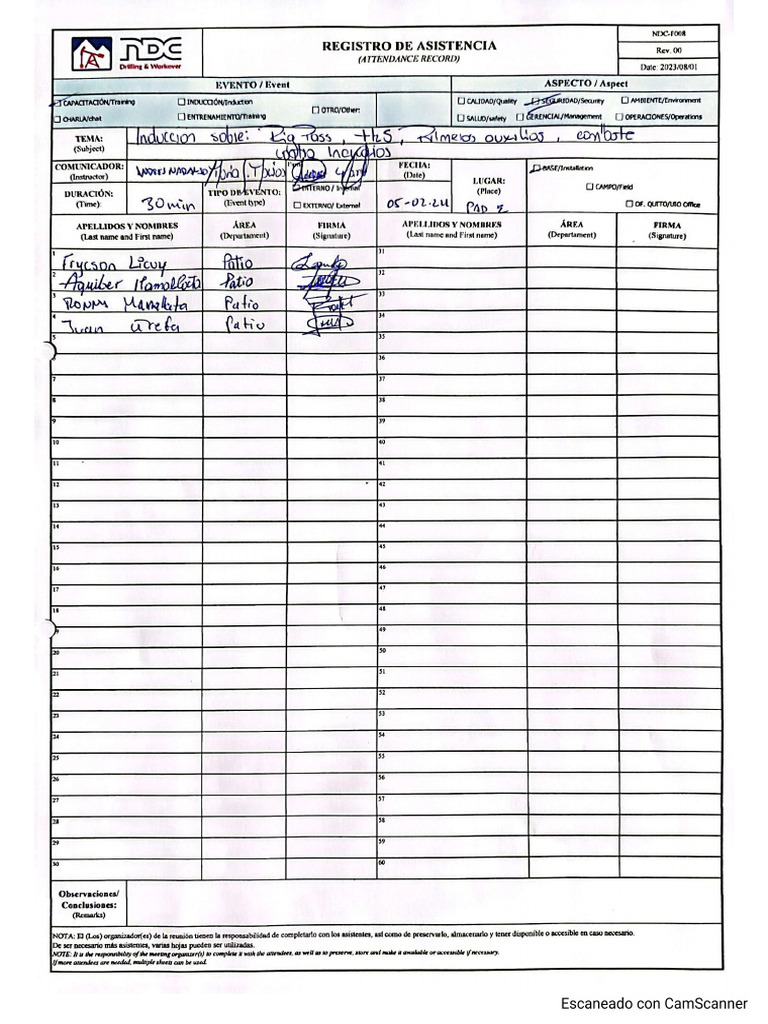 NDC
Drilling & Workover
REGISTRO DE ASISTENCIA
(ATTENDANCE RECORD)
NDC-F008
Rev. 00
Date: 2023/08/01
EVENTO / Event
ASPECTO / Aspect
CAPACITACIÓN/Training
INDUCCIÓN/Induction
OTRO/Other:
CALIDAD/Quality
SEGURIDAD/Security
AMBIENTE/Environment
CHARLA/chat
ENTRENAMIENTO/Training
SALUD/safety
GERENCIAL/Management
OPERACIONES/Operations
TEMA:
(Subject)
Induccion sobre: Rig Pass, H2S, Primeros auxilios, combate
contra Incendios
COMUNICADOR:
(Instructor)
FECHA:
(Date)
05-02-24
LUGAR:
(Place)
PAD 2
BASE/Installation
CAMPO/Field
OF. QUITO/UIO Office
DURACIÓN:
(Time):
30 min
TIPO DE EVENTO:
(Event type)
INTERNO / Internal
EXTERNO/ External
APELLIDOS Y NOMBRES
(Last name and First name)
ÁREA
(Departament)
FIRMA
(Signature)
APELLIDOS Y NOMBRES
(Last name and First name)
ÁREA
(Departament)
FIRMA
(Signature)
1 Frycson Licuy Patio 31
2 Aquiber Patio 32
3 Ronny Patio 33
4 Juan Patio 34
5 35
36
7 37
8 38
9 39
10 40
11 41
12 42
13 43
14 44
15 45
16 46
17 47
18 48
49
20 50
21 51
22 52
23 53
24 54
25 55
26 56
27 57
28 58
29 59
30 60
Observaciones/
Conclusiones:
(Remarks)
NOTA: El (Los) organizador(es) de la reunión tienen la responsabilidad de completarlo con los asistentes, así como de preservarlo, almacenarlo y tener disponible o accesible en caso necesario.
De ser necesario más asistentes, varias hojas pueden ser utilizadas.
NOTE: It is the responsibility of the meeting organizer(s) to complete it with the attendees, as well as to preserve, store and make it available or accessible if necessary.
If more attendees are needed, multiple sheets can be used.
Escaneado con CamScanner